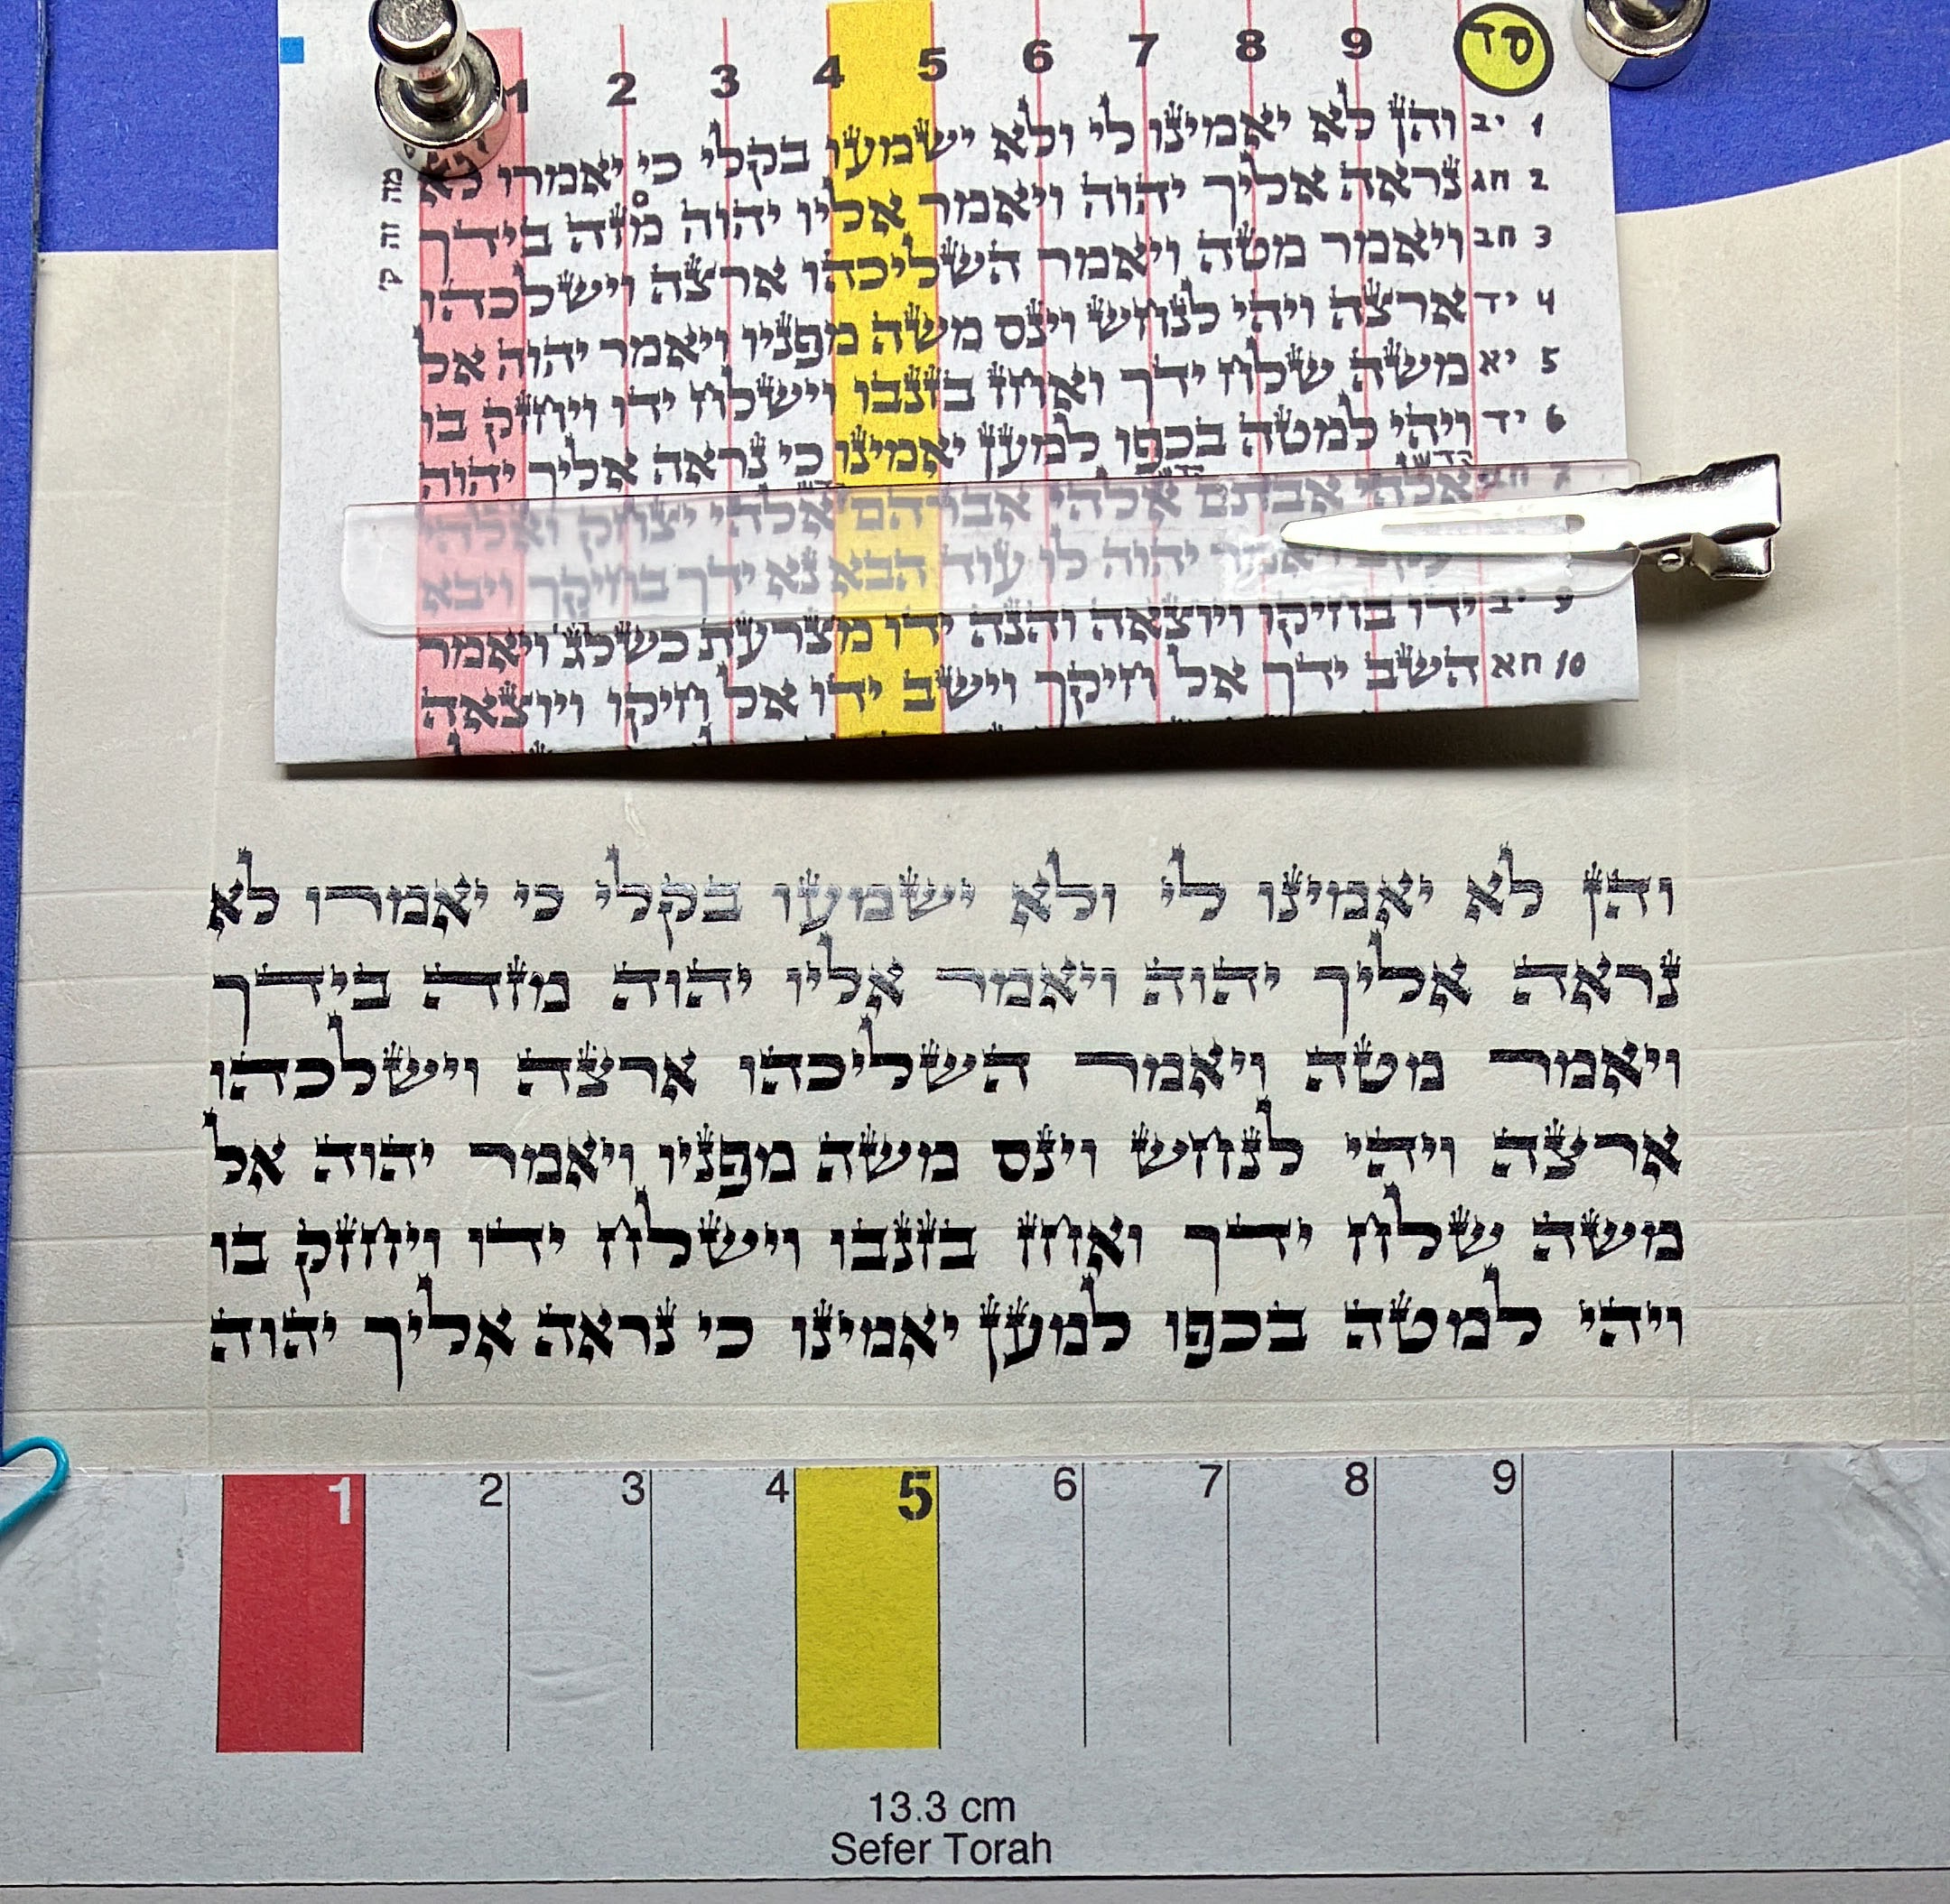 1 2 3 4 5 6 7 8 9 סד
1 יב והן לא יאמינו לי ולא ישמעו בקלי כי יאמרו לא
2 חג נראה אליך יהוה ויאמר אליו יהוה מזה בידך
מה זה ק'
3 חב ויאמר מטה ויאמר השליכהו ארצה וישלכהו
4 יד ארצה ויהי לנחש וינס משה מפניו ויאמר יהוה אל
5 יא משה שלח ידך ואחז בזנבו וישלח ידו ויחזק בו
6 יד ויהי למטה בכפו למען יאמינו כי נראה אליך יהוה
אלהי אבתם אלהי אברהם אלהי יצחק ואלהי
יהוה לו עוד הבא נא ידך בחיקך ויבא
9 יב ידו בחיקו ויוצאה והנה ידו מצרעת כשלג ויאמר
10 חא השב ידך אל חיקך וישב ידו אל חיקו ויוצאה
והן לא יאמינו לי ולא ישמעו בקלי כי יאמרו לא
נראה אליך יהוה ויאמר אליו יהוה מזה בידך
ויאמר מטה ויאמר השליכהו ארצה וישלכהו
ארצה ויהי לנחש וינס משה מפניו ויאמר יהוה אל
משה שלח ידך ואחז בזנבו וישלח ידו ויחזק בו
ויהי למטה בכפו למען יאמינו כי נראה אליך יהוה
1 2 3 4 5 6 7 8 9
13.3 cm
Sefer Torah